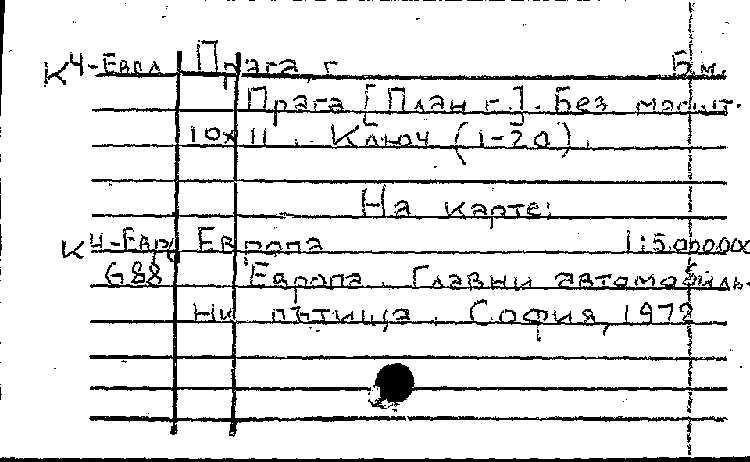 К4-Евр Прага, г. Б.м.
Прага [План г.]. Без масшт.
10х11. Ключ (1-20).
На карте:
К4-Евр Европа 1:5.000.000
G88 Европа. Главни автомобиль-
ни пътища. София, 1972